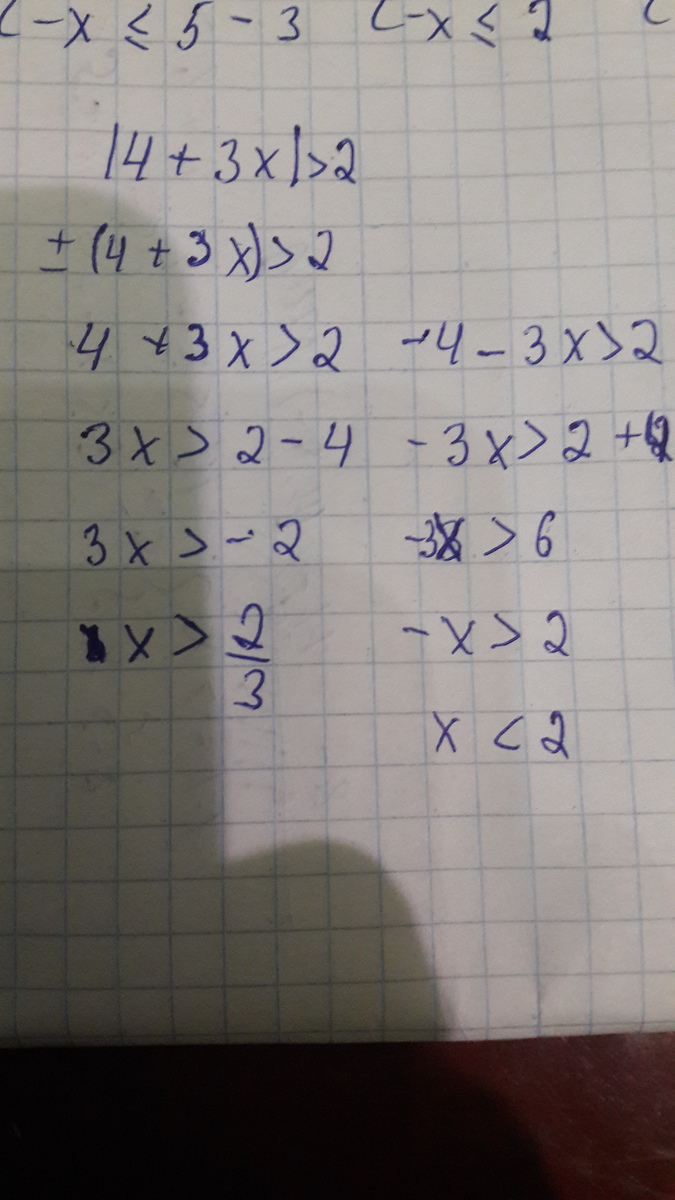 (-x ≤ 5 - 3 (-x ≤ 2 (
|4 + 3x| > 2
± (4 + 3x) > 2
4 + 3x > 2 -4 - 3x > 2
3x > 2 - 4 -3x > 2 +
3x > - 2 -3x > 6
x > 2/3 -x > 2
x < 2